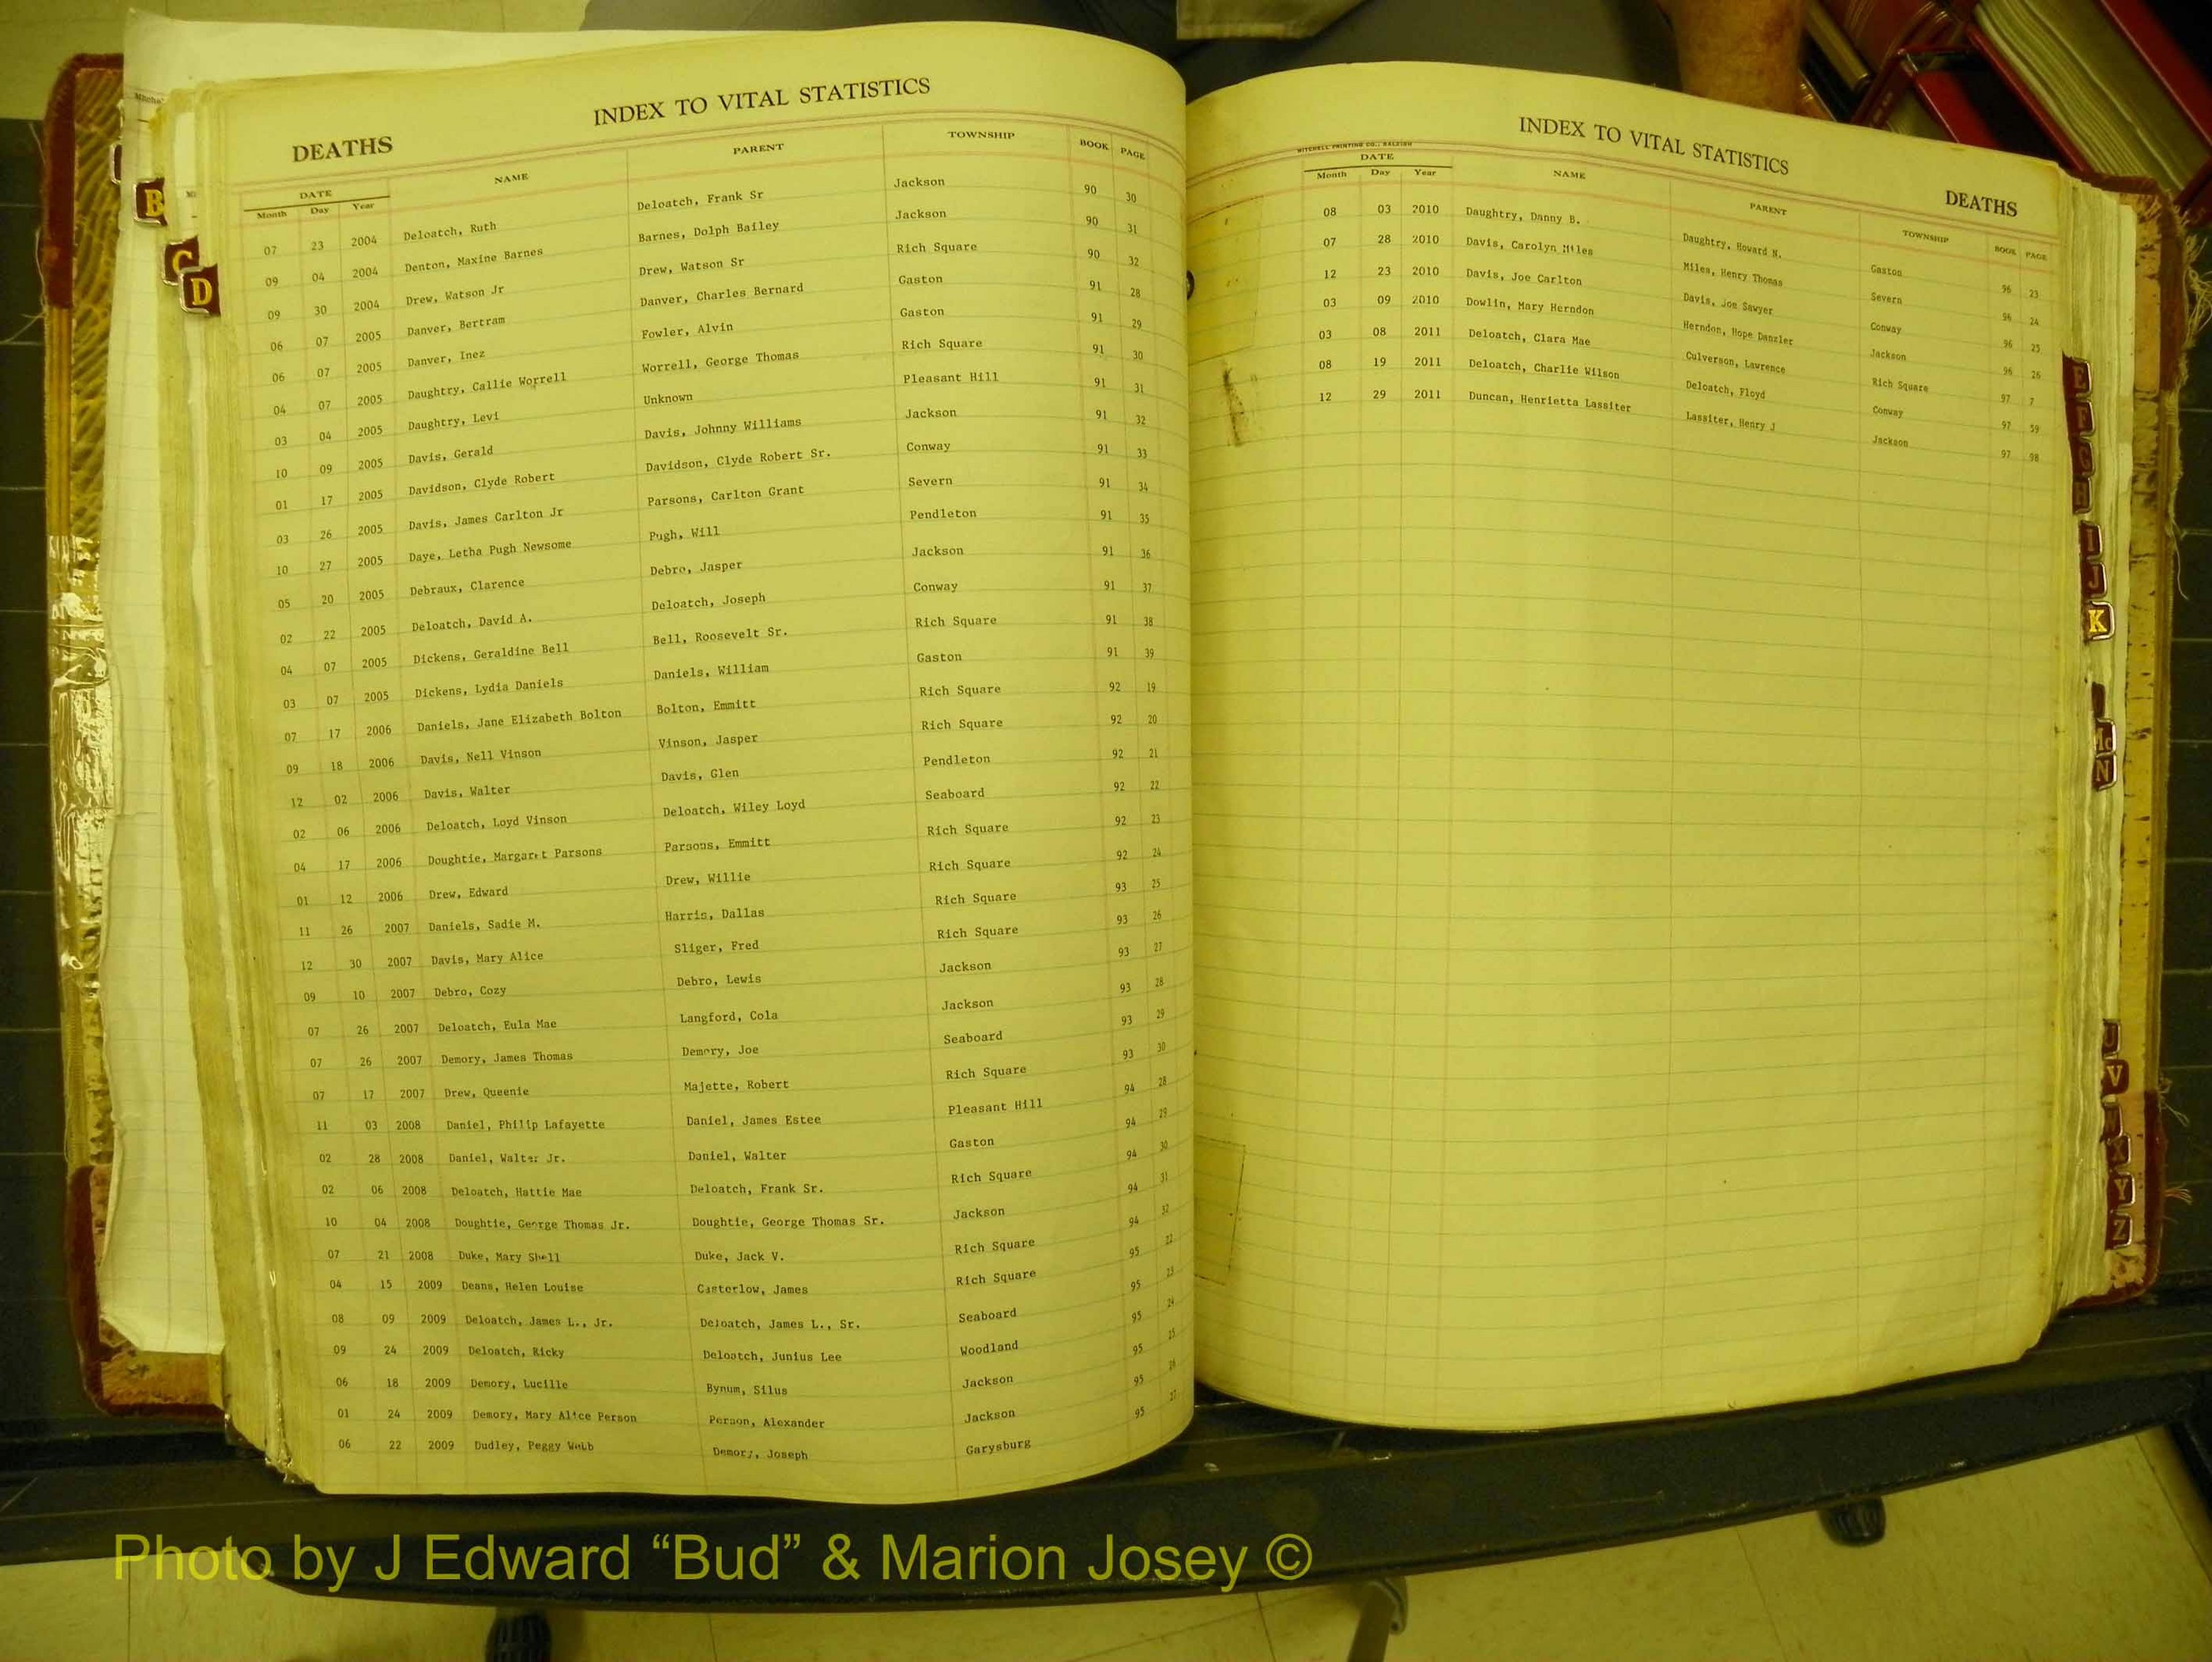 INDEX TO VITAL STATISTICS
DEATHS
DATE NAME PARENT TOWNSHIP BOOK PAGE
Month Day Year
07 23 2004 Deloatch, Ruth Deloatch, Frank Sr Jackson 90 30
09 04 2004 Denton, Maxine Barnes Barnes, Dolph Bailey Jackson 90 31
09 30 2004 Drew, Watson Jr Drew, Watson Sr Rich Square 90 32
06 07 2005 Danver, Bertram Danver, Charles Bernard Gaston 91 28
06 07 2005 Danver, Inez Fowler, Alvin Gaston 91 29
04 07 2005 Daughtry, Callie Worrell Worrell, George Thomas Rich Square 91 30
03 04 2005 Daughtry, Levi Unknown Pleasant Hill 91 31
10 09 2005 Davis, Gerald Davis, Johnny Williams Jackson 91 32
01 17 2005 Davidson, Clyde Robert Davidson, Clyde Robert Sr. Conway 91 33
03 26 2005 Davis, James Carlton Jr Parsons, Carlton Grant Severn 91 34
10 27 2005 Daye, Letha Pugh Newsome Pugh, Will Pendleton 91 35
05 20 2005 Debraux, Clarence Debro, Jasper Jackson 91 36
02 22 2005 Deloatch, David A. Deloatch, Joseph Conway 91 37
04 07 2005 Dickens, Geraldine Bell Bell, Roosevelt Sr. Rich Square 91 38
03 07 2005 Dickens, Lydia Daniels Daniels, William Gaston 91 39
07 17 2006 Daniels, Jane Elizabeth Bolton Bolton, Emmitt Rich Square 92 19
09 18 2006 Davis, Nell Vinson Vinson, Jasper Rich Square 92 20
12 02 2006 Davis, Walter Davis, Glen Pendleton 92 21
02 06 2006 Deloatch, Loyd Vinson Deloatch, Wiley Loyd Seaboard 92 22
04 17 2006 Doughtie, Margaret Parsons Parsons, Emmitt Rich Square 92 23
01 12 2006 Drew, Edward Drew, Willie Rich Square 92 24
11 26 2007 Daniels, Sadie M. Harris, Dallas Rich Square 93 25
12 30 2007 Davis, Mary Alice Sliger, Fred Rich Square 93 26
09 10 2007 Debro, Cozy Debro, Lewis Jackson 93 27
07 26 2007 Deloatch, Eula Mae Langford, Cola Jackson 93 28
07 26 2007 Demory, James Thomas Demory, Joe Seaboard 93 29
07 17 2007 Drew, Queenie Majette, Robert Rich Square 93 30
11 03 2008 Daniel, Philip Lafayette Daniel, James Estee Pleasant Hill 94 28
02 28 2008 Daniel, Walter Jr. Daniel, Walter Gaston 94 29
02 06 2008 Deloatch, Hattie Mae Deloatch, Frank Sr. Rich Square 94 30
10 04 2008 Doughtie, George Thomas Jr. Doughtie, George Thomas Sr. Jackson 94 31
07 21 2008 Duke, Mary Shell Duke, Jack V. Rich Square 94 32
04 15 2009 Deans, Helen Louise Casterlow, James Rich Square 95 22
08 09 2009 Deloatch, James L., Jr. Deloatch, James L., Sr. Seaboard 95 23
09 24 2009 Deloatch, Ricky Deloatch, Junius Lee Woodland 95 24
06 18 2009 Demory, Lucille Bynum, Silus Jackson 95 25
01 24 2009 Demory, Mary Alice Person Person, Alexander Jackson 95 26
06 22 2009 Dudley, Peggy Webb Demory, Joseph Garysburg 95 27
B
C
D
INDEX TO VITAL STATISTICS
DEATHS
MITCHELL PRINTING CO., RALEIGH
DATE NAME PARENT TOWNSHIP BOOK PAGE
Month Day Year
08 03 2010 Daughtry, Danny B. Daughtry, Howard N. Gaston 96 23
07 28 2010 Davis, Carolyn Miles Miles, Henry Thomas Severn 96 24
12 23 2010 Davis, Joe Carlton Davis, Joe Sawyer Conway 96 25
03 09 2010 Dowlin, Mary Herndon Herndon, Hope Danzler Jackson 96 26
03 08 2011 Deloatch, Clara Mae Culverson, Lawrence Rich Square 97 7
08 19 2011 Deloatch, Charlie Wilson Deloatch, Floyd Conway 97 59
12 29 2011 Duncan, Henrietta Lassiter Lassiter, Henry J Jackson 97 98
E
F
G
H
I
J
K
Mc
N
U
V
X
Y
Z
Photo by J Edward “Bud” & Marion Josey ©